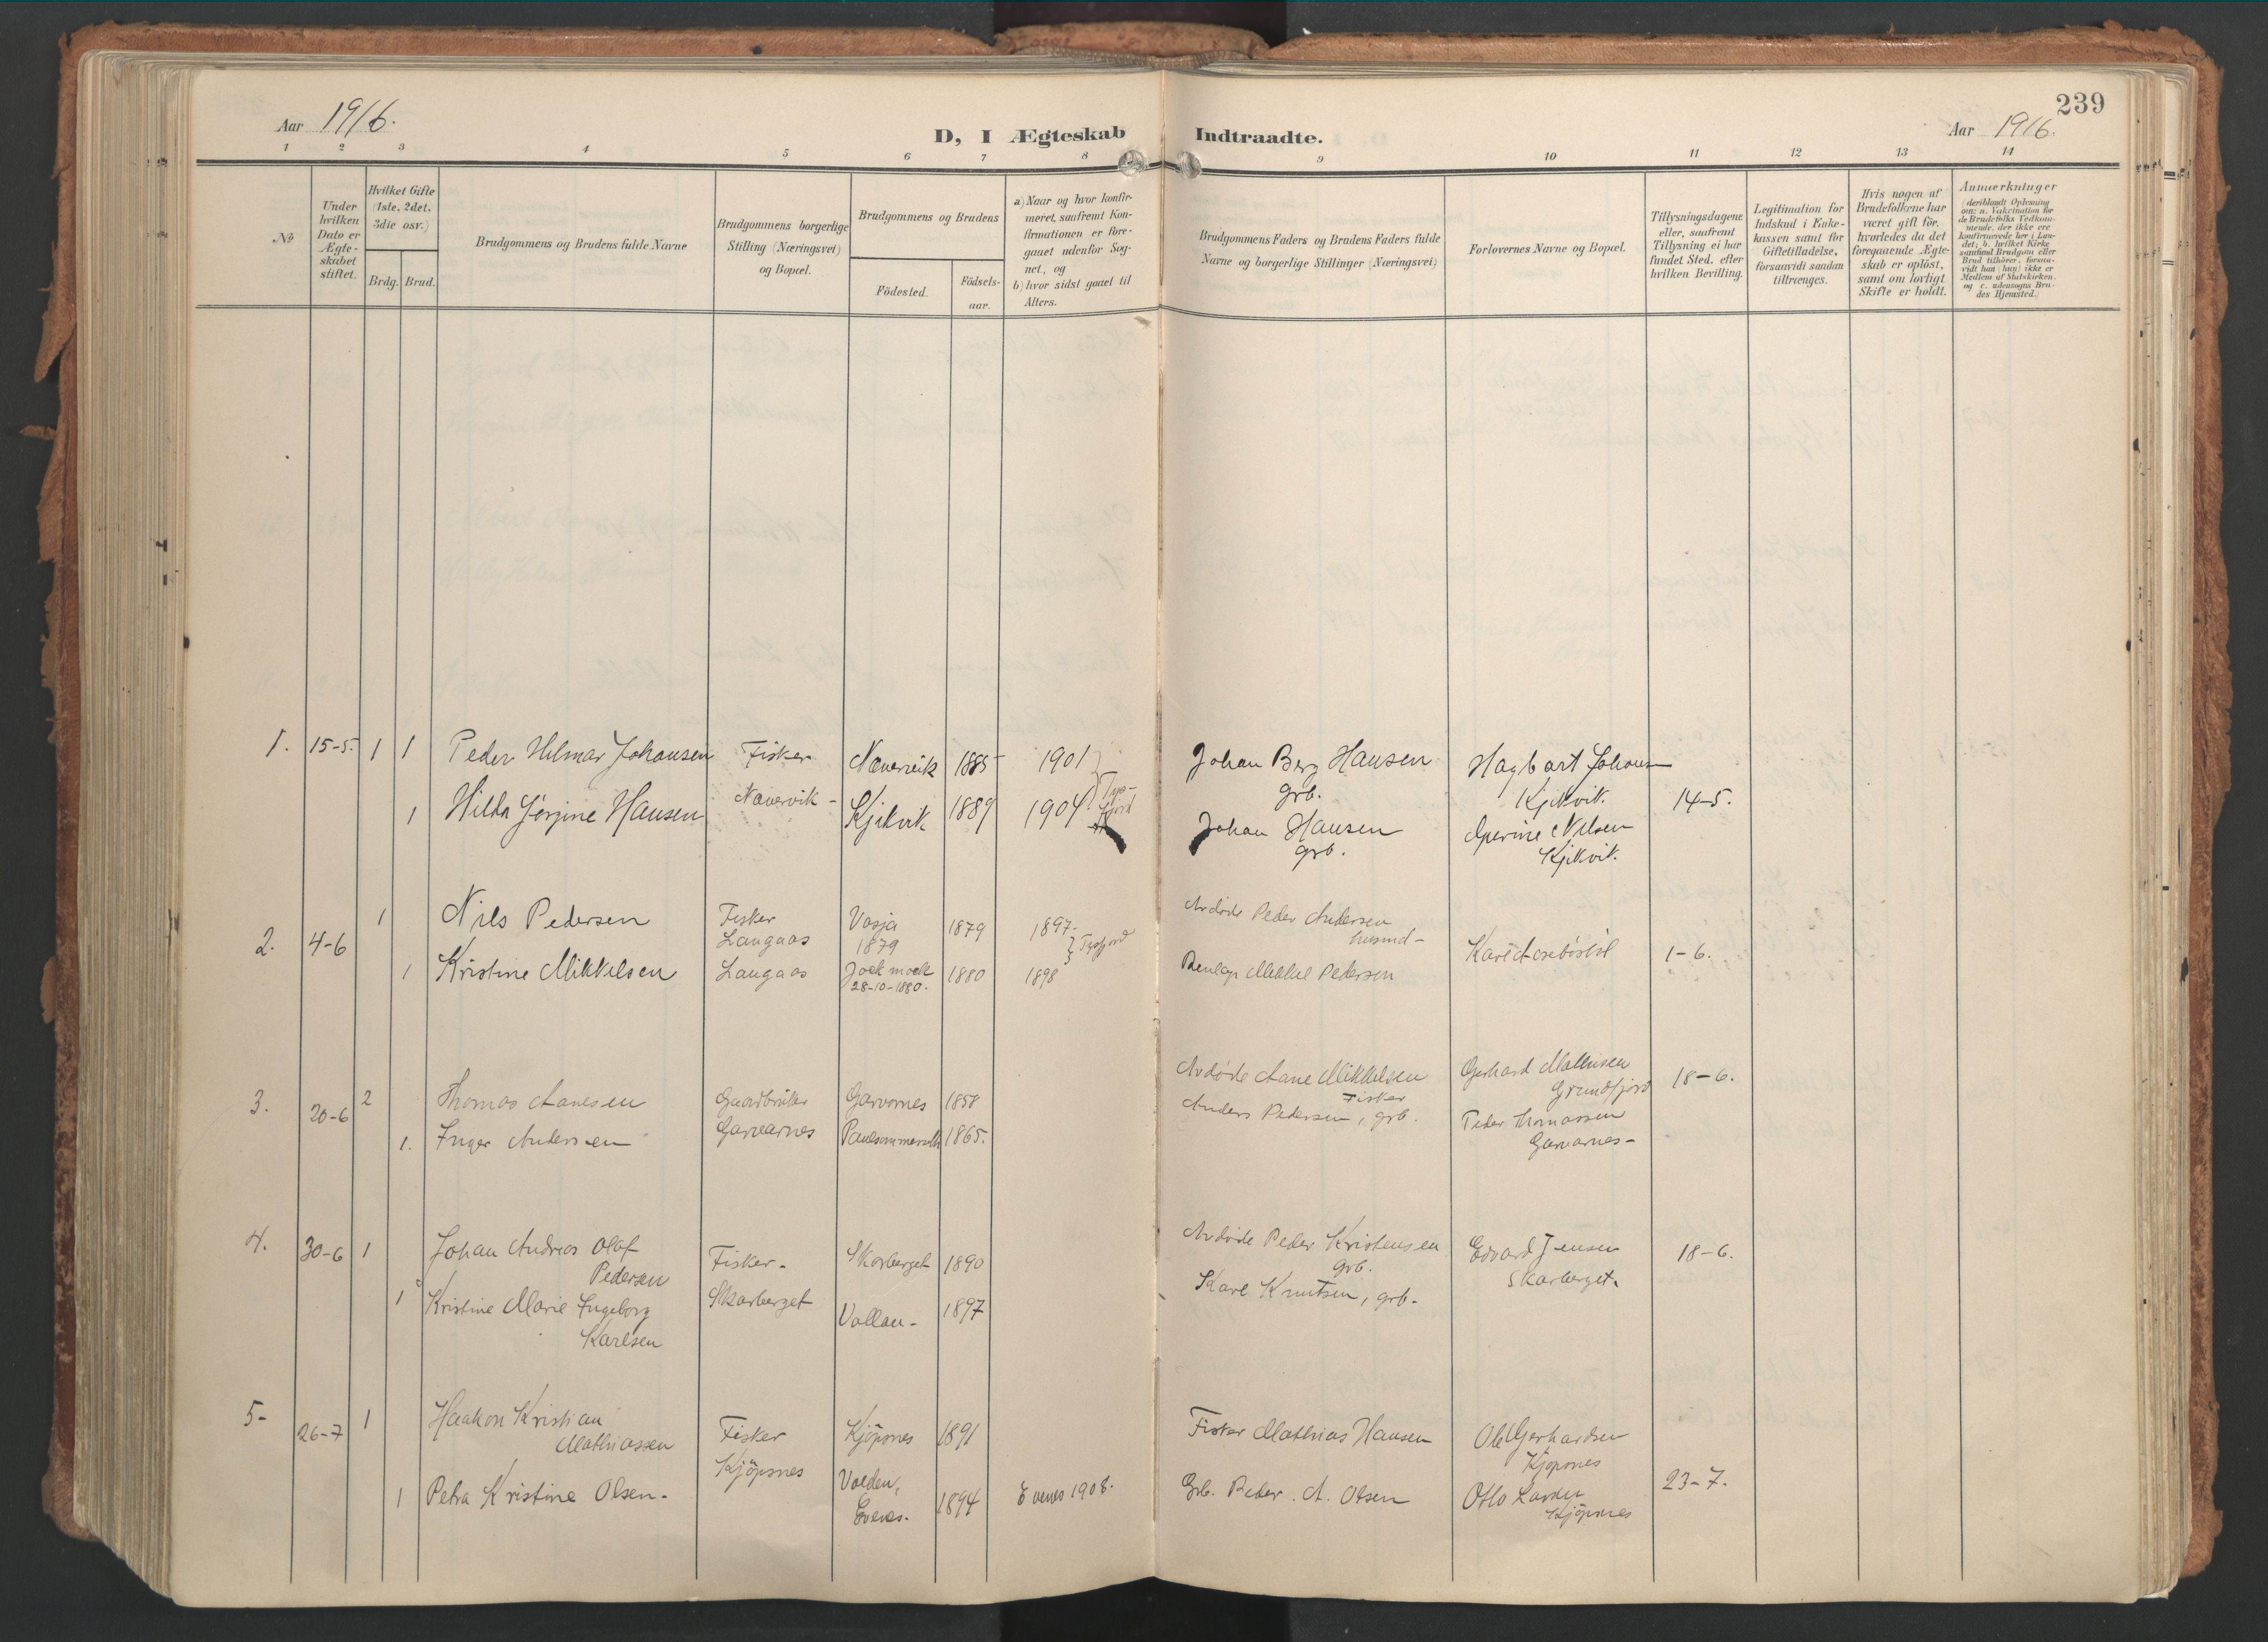 239
Aar 1916.
D, I Ægteskab Indtraadte.
Aar 1916.
1 2 3 4 5 6 7 8 9 10 11 12 13 14
No
Under hvilken Dato er Ægteskabet stiftet.
Hvilket Gifte (1ste, 2det, 3die osv.)
Brdg. Brud.
Brudgommens og Brudens fulde Navne
Brudgommens borgerlige Stilling (Næringsvei) og Bopæl.
Brudgommens og Brudens
Födested. Födsels-aar.
a) Naar og hvor konfir-
meret, saafremt Kon-
firmationen er fore-
gaaet udenfor Sog-
net, og
b) hvor sidst gaaet til
Alters.
Brudgommens Faders og Brudens Faders fulde
Navne og borgerlige Stillinger (Næringsvei)
Forlovernes Navne og Bopæl.
Tillysningsdagene
eller, saafremt
Tillysning ei har
fundet Sted, efter
hvilken Bevilling.
Legitimation for
Indskud i Enke-
kassen samt for
Giftetilladelse,
forsaavidt saadan
tiltrænges.
Hvis nogen af
Brudefolkene har
været gift för,
hvorledes da det
foregaaende Ægte-
skab er oplöst,
samt om lovligt
Skifte er holdt.
Anmærkninger
(deriblandt Oplysning
om: a. Vakcination for
de Brudefolks Vedkom-
mende, der ikke ere
konfirmerede her i Lan-
det; b. hvilket Kirke-
samfund Brudgom eller
Brud tilhörer, forsaa-
vidt han (hun) ikke er
Medlem af Statskirken,
og c. udensogns Bru-
des Hjemsted.)
1. 15-5. 1 1 Peder Hilmar Johansen Fisker Nævervik 1885 1901 Johan Berg Hansen grb. Hagbart Johansen Kjikvik. 14-5.
1 Hilda Jörgine Hansen Nævervik - Kjikvik 1889 1904 Tysfjord Johan Hansen grb. Nilsen Kjikvik.
2. 4-6 1 Nils Pedersen Fisker Langaas Vasja 1879 1879 1897. Avdöde Peder Andersen husmd- 1-6.
1 Kristine Mikkelsen Langaas Jockmock 28-10-1880. 1880 1898 } Tysfjord Mikkel Pedersen
3. 20-6 2 Thomas Aanesen Gaardbruker Garvarnes 1858 Avdöde Aane Mikkelsen Fisker Gerhard Mathisen Grundfjord 18-6.
1. Inger Andersen Garvarnes 1865. Anders Pedersen, grb. Peder Thomassen Garvarnes-
4. 30-6 1 Johan Andreas Olaf Pedersen Fisker- Skarberget 1890 Avdöde Peder Kristensen grb. Edvard Jensen Skarberget. 18-6.
1 Kristine Marie Ingeborg Karlsen Skarberget Vallan- 1897 Karl Knutsen, grb.
5- 26-7 1 Haakon Kristian Mathiassen Fisker Kjöpsnes Kjöpsnes 1891 Fisker Mathias Hansen Ole Gerhardsen Kjöpsnes 23-7.
1 Petra Kristine Olsen. Volden, Evenes. 1894 Evenes 1908. Grb. Peder. A. Olsen Otto Kjöpsnes